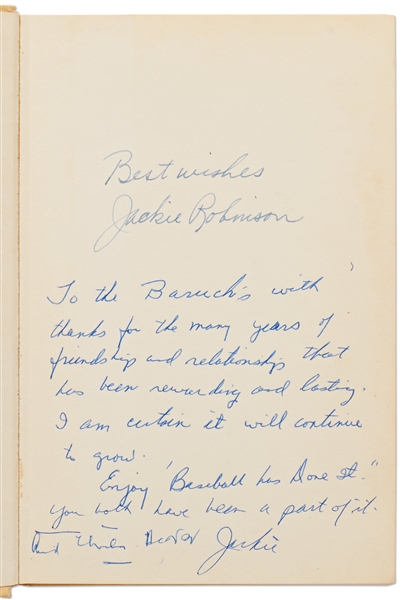 Best wishes
Jackie Robinson
To the Baruch's with
thanks for the many years of
friendship and relationship that
has been rewarding and lasting.
I am certain it will continue
to grow.
Enjoy "Baseball has Done It."
you both have been a part of it.
And
Jackie